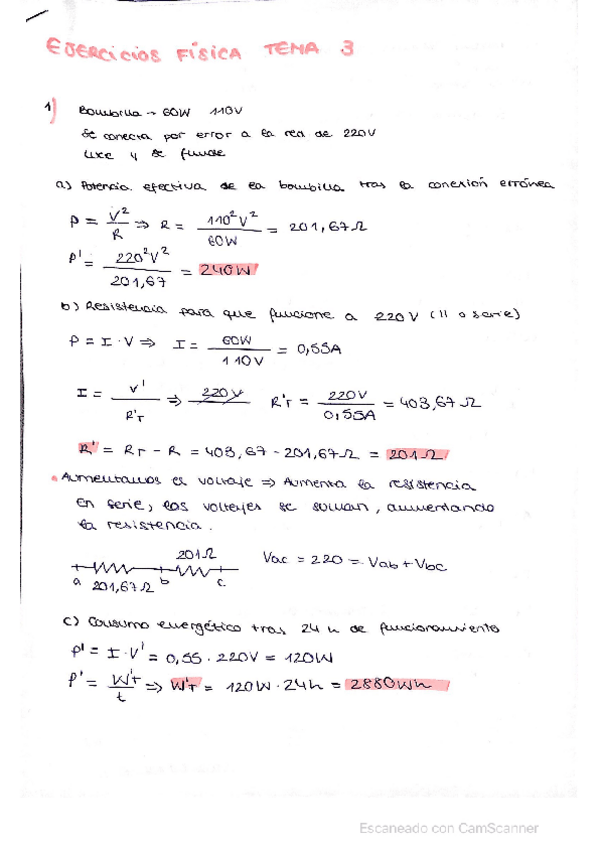 EJERCICIOS FÍSICA TEMA 3
1) Bombilla → 60W 110V
Se conecta por error a la red de 220V
Luce y se funde
a) Potencia efectiva de la bombilla tras la conexión errónea
P = V²/R ⇒ R = 110²V²/60W = 201,67Ω
P' = 220²V²/201,67 = 240W
b) Resistencia para que funcione a 220V (II o serie)
P = I · V ⇒ I = 60W/110V = 0,55A
I = V'/R'T ⇒ 220V R'T = 220V/0,55A = 403,67Ω
R' = RT - R = 403,67 - 201,67Ω = 201Ω
Aumentamos el voltaje ⇒ Aumenta la resistencia
En serie, los voltajes se suman, aumentando
la resistencia.
201Ω Vac = 220 = Vab + Vbc
a 201,67Ω b c
c) Consumo energético tras 24h de funcionamiento
P' = I · V' = 0,55 · 220V = 120W
P' = W'T/t ⇒ W'T = 120W · 24h = 2880Wh
Escaneado con CamScanner